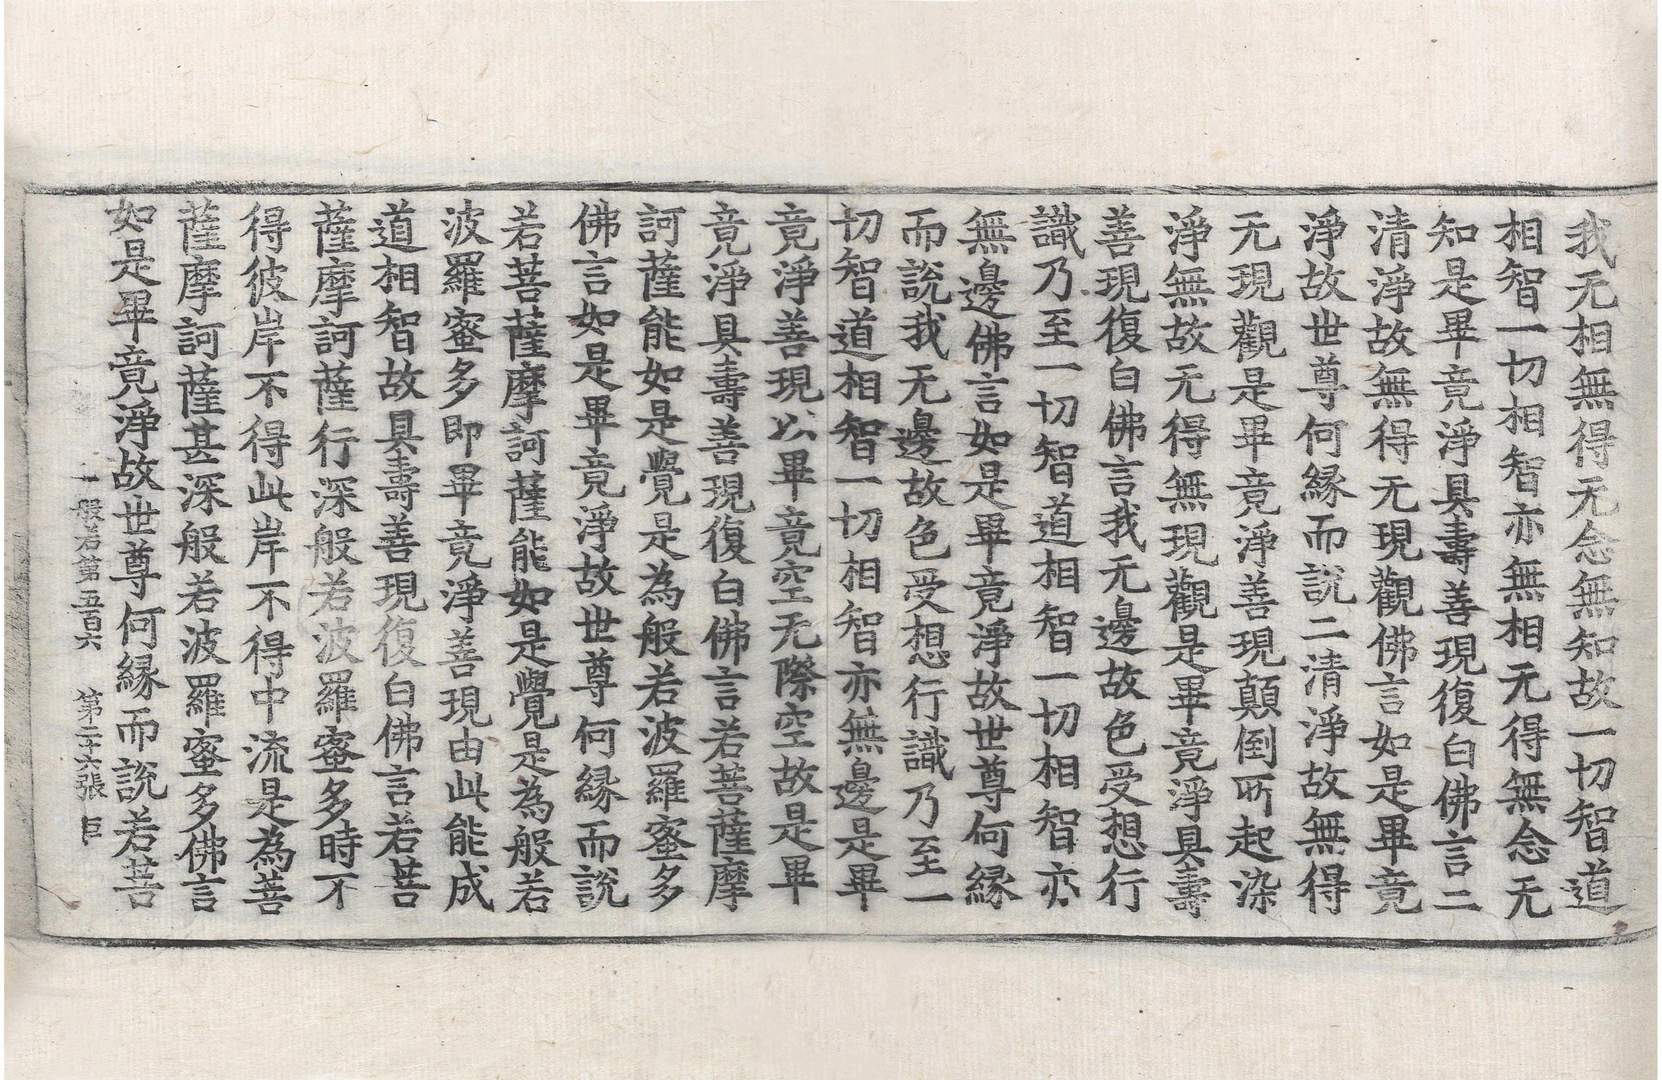 我无相無得无念無知故一切智道
相智一切相智亦無相无得無念无
知是畢竟淨具壽善現復白佛言二
清淨故無得无現觀佛言如是畢竟
淨故世尊何緣而說二清淨故無得
无現觀是畢竟淨善現顛倒所起染
淨無故无得無現觀是畢竟淨具壽
善現復白佛言我无邊故色受想行
識乃至一切智道相智一切相智亦
無邊佛言如是畢竟淨故世尊何緣
而說我无邊故色受想行識乃至一
切智道相智一切相智亦無邊是畢
竟淨善現以畢竟空无際空故是畢
竟淨具壽善現復白佛言若菩薩摩
訶薩能如是覺是為般若波羅蜜多
佛言如是畢竟淨故世尊何緣而說
若菩薩摩訶薩能如是覺是為般若
波羅蜜多即畢竟淨善現由此能成
道相智故具壽善現復白佛言若菩
薩摩訶薩行深般若波羅蜜多時不
得彼岸不得此岸不得中流是為菩
薩摩訶薩甚深般若波羅蜜多佛言
如是畢竟淨故世尊何緣而說若菩
般若第五百六 第二十六張